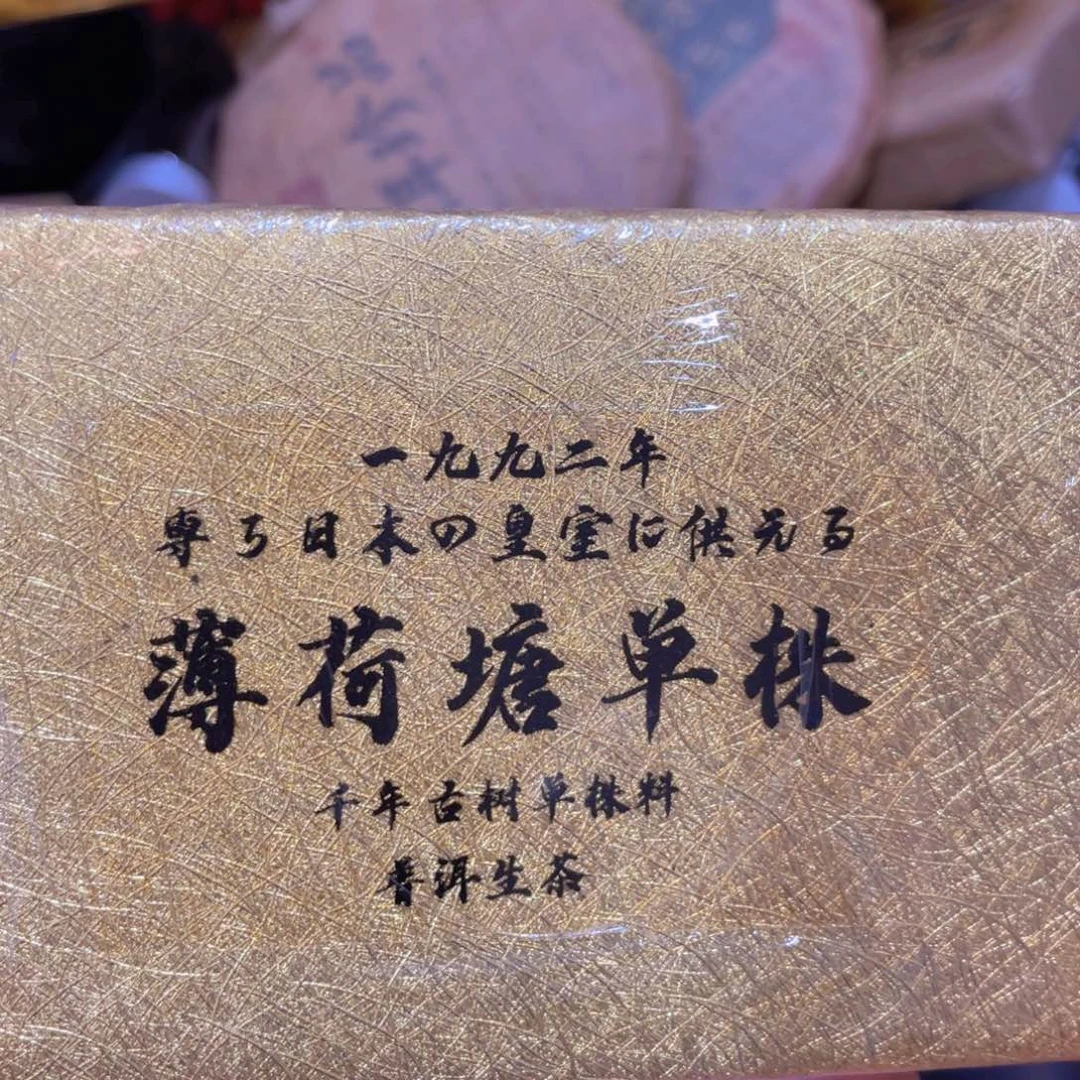 一九九二年
専ら日本の皇室に供元る
薄荷塘单株
千年古树单株料
普洱生茶